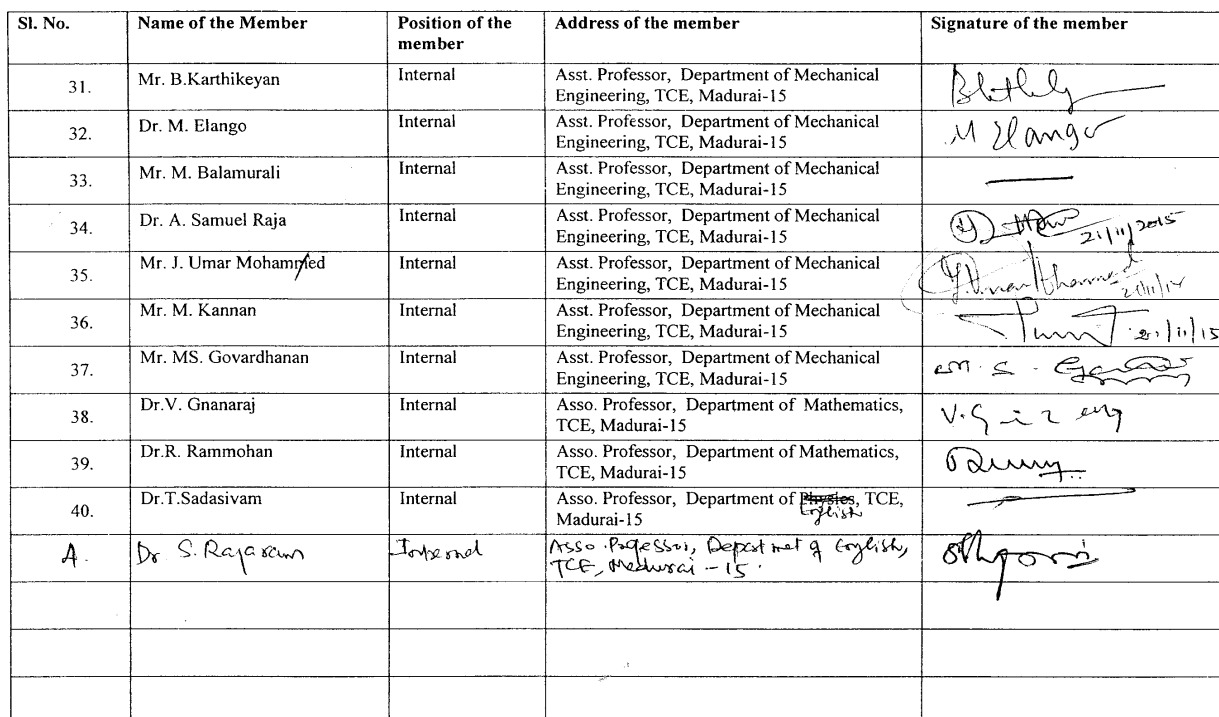 Sl. No. Name of the Member Position of the Address of the member Signature of the member
member
31. Mr. B.Karthikeyan Internal Asst. Professor, Department of Mechanical
Engineering, TCE, Madurai-15
32. Dr. M. Elango Internal Asst. Professor, Department of Mechanical M Elango
Engineering, TCE, Madurai-15
33. Mr. M. Balamurali Internal Asst. Professor, Department of Mechanical
Engineering, TCE, Madurai-15
34. Dr. A. Samuel Raja Internal Asst. Professor, Department of Mechanical
Engineering, TCE, Madurai-15 21/11/2015
35. Mr. J. Umar Mohammed Internal Asst. Professor, Department of Mechanical
Engineering, TCE, Madurai-15
36. Mr. M. Kannan Internal Asst. Professor, Department of Mechanical
Engineering, TCE, Madurai-15 21/11/15
37. Mr. MS. Govardhanan Internal Asst. Professor, Department of Mechanical
Engineering, TCE, Madurai-15 M. S.
38. Dr.V. Gnanaraj Internal Asso. Professor, Department of Mathematics,
TCE, Madurai-15
39. Dr.R. Rammohan Internal Asso. Professor, Department of Mathematics,
TCE, Madurai-15
40. Dr.T.Sadasivam Internal Asso. Professor, Department of Physics, TCE,
English
Madurai-15
A. Dr S. Rajaram Internal Asso. Professor, Department of English,
TCE, Madurai - 15.